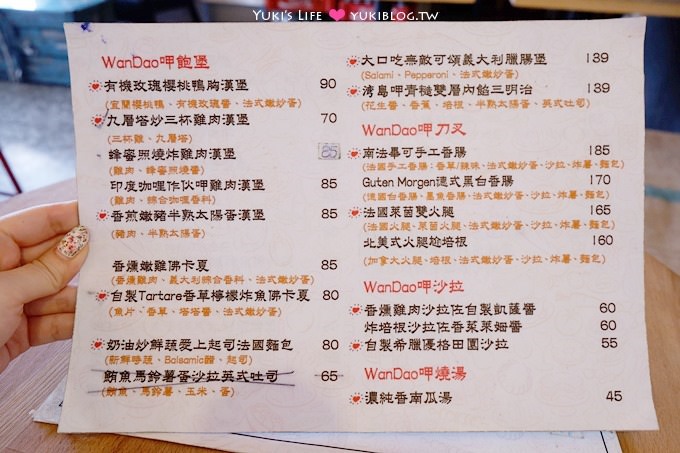 YUKI'S LIFE ❤ YUKIBLOG.TW
WanDao呷飽堡
有機玫瑰櫻桃鴨胸漢堡 90
(宜蘭櫻桃鴨、有機玫瑰醬、法式嫩炒蛋)
九層塔炒三杯雞肉漢堡 70
(三杯雞、九層塔)
蜂蜜照燒炸雞肉漢堡 85
(雞肉、蜂蜜照燒醬)
印度咖哩作伙呷雞肉漢堡 85
(雞肉、綜合咖哩香料)
香煎嫩豬半熟太陽蛋漢堡 85
(豬肉、半熟太陽蛋)
香燻嫩雞佛卡夏 85
(香燻雞肉、義大利綜合香料、法式嫩炒蛋)
自製Tartare香草檸檬炸魚佛卡夏 80
(魚片、香草、塔塔醬、法式嫩炒蛋)
奶油炒鮮蔬愛上起司法國麵包 80
(新鮮時蔬、Balsamic醋、起司)
鮪魚馬鈴薯蛋沙拉英式吐司 65
(鮪魚、馬鈴薯、玉米、蛋)
大口吃無敵可頌義大利臘腸堡 139
(Salami、Pepperoni、法式嫩炒蛋)
湾島呷青槎雙層內餡三明治 139
(花生醬、香蕉、培根、半熟太陽蛋、英式吐司)
WanDao呷刀叉
南法畢可手工香腸 185
(法國手工香腸：香草/辣味、法式嫩炒蛋、沙拉、炸薯、麵包)
Guten Morgen德式黑白香腸 170
(德國白香腸、墨魚香腸、法式嫩炒蛋、沙拉、炸薯、麵包)
法國萊茵雙火腿 165
(法國火腿、萊茵火腿、法式嫩炒蛋、沙拉、炸薯、麵包)
北美式火腿尬培根 160
(加拿大火腿、培根、法式嫩炒蛋、沙拉、炸薯、麵包)
WanDao呷沙拉
香燻雞肉沙拉佐自製凱薩醬 60
炸培根沙拉佐香茱萊姍醬 60
自製希臘優格田園沙拉 55
WanDao呷燒湯
濃純香南瓜湯 45